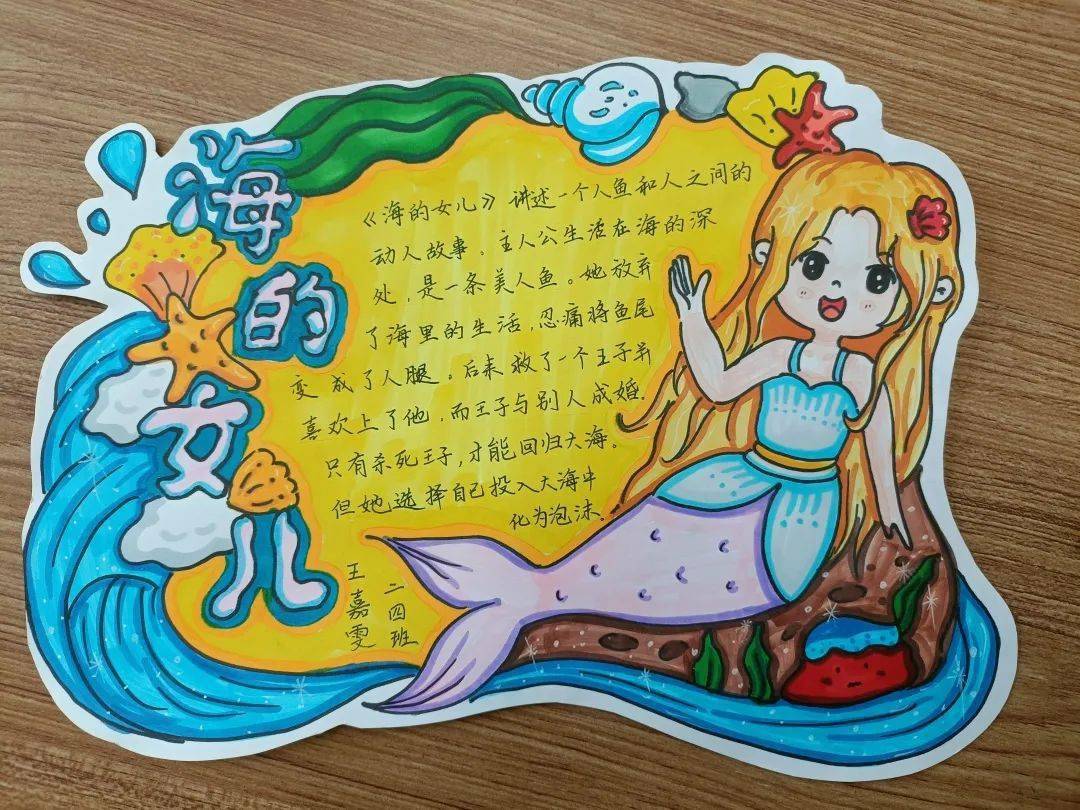 海的女儿
《海的女儿》讲述一个人鱼和人之间的
动人故事。主人公生活在海的深
处，是一条美人鱼。她放弃
了海里的生活，忍痛将鱼尾
变成了人腿。后来救了一个王子并
喜欢上了他，而王子与别人成婚.
只有杀死王子，才能回归大海。
但她选择自己投入大海中
化为泡沫。
二四班
王嘉雯